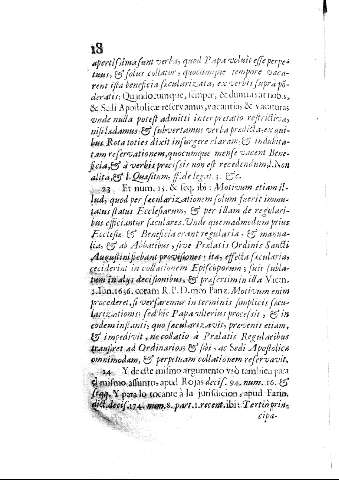 18
apertissima sunt verba, quod Papa voluit esse perpe-
tuus, & solus collator, quocunque tempore vaca-
rent ista beneficia sæcularizata; ex verbis supra põ-
deratis: Quandocumque, semper, & dumtaxat nobis,
& Sedi Apostolicæ reservamus, vacantia & vacatura
unde nulla potest admitti interpretatio restrictiva;
nisi lædamus & subvertamus verba prædicta; ex qui-
bus Rota toties dixit insurgere claram, & indubita-
tam reservationem, quocumque mense vacent Bene-
ficia, & à verbis præcisis non est recedendum, l. Non
alita, & l. Quæsitum, ff. de legat. 3. &c.
23 Et num. 15. & seq. ibi: Motivum etiam il-
lud, quod per sæcularizationem solum fuerit immu-
tatus status Ecclesiarum, & per illam de regulari-
bus efficiantur sæculares. Unde quemadmodum prius
Ecclesiæ & Beneficia erant regularia, & manua-
lia, & ab Abbatibus, sive Prælatis Ordinis Sancti
Augustini habant provisiones; ita, effecta sæcularia,
ceciderint in collationem Episcoporum; fuit subla-
tum in alijs decisionibus, & præsertim in illa Vicen.
2. Iun. 1636. coram R. P. D. meo Paniz. Motivum enim
procederet, si versaremur in terminis simplicis sæcu-
larizationis: sed hic Papa ulterius processit, & in
eodem instanti, quo sæcularizavit, prævenit etiam,
& impedivit, ne collatio à Prælatis Regularibus
transiret ad Ordinarios; & sibi, ac Sedi Apostolicæ
omnimodam, & perpetuam collationem reservavit.
24 Y de este mismo argumento usò tambien para
el mismo assunto, apud Rojas decis. 94. num. 16. &
seqq. Y para lo tocante à la jurisdicion, apud Farin.
dict. decis. 174. num. 8. part. 1. recent. ibi: Tertiò prin-
cipa-